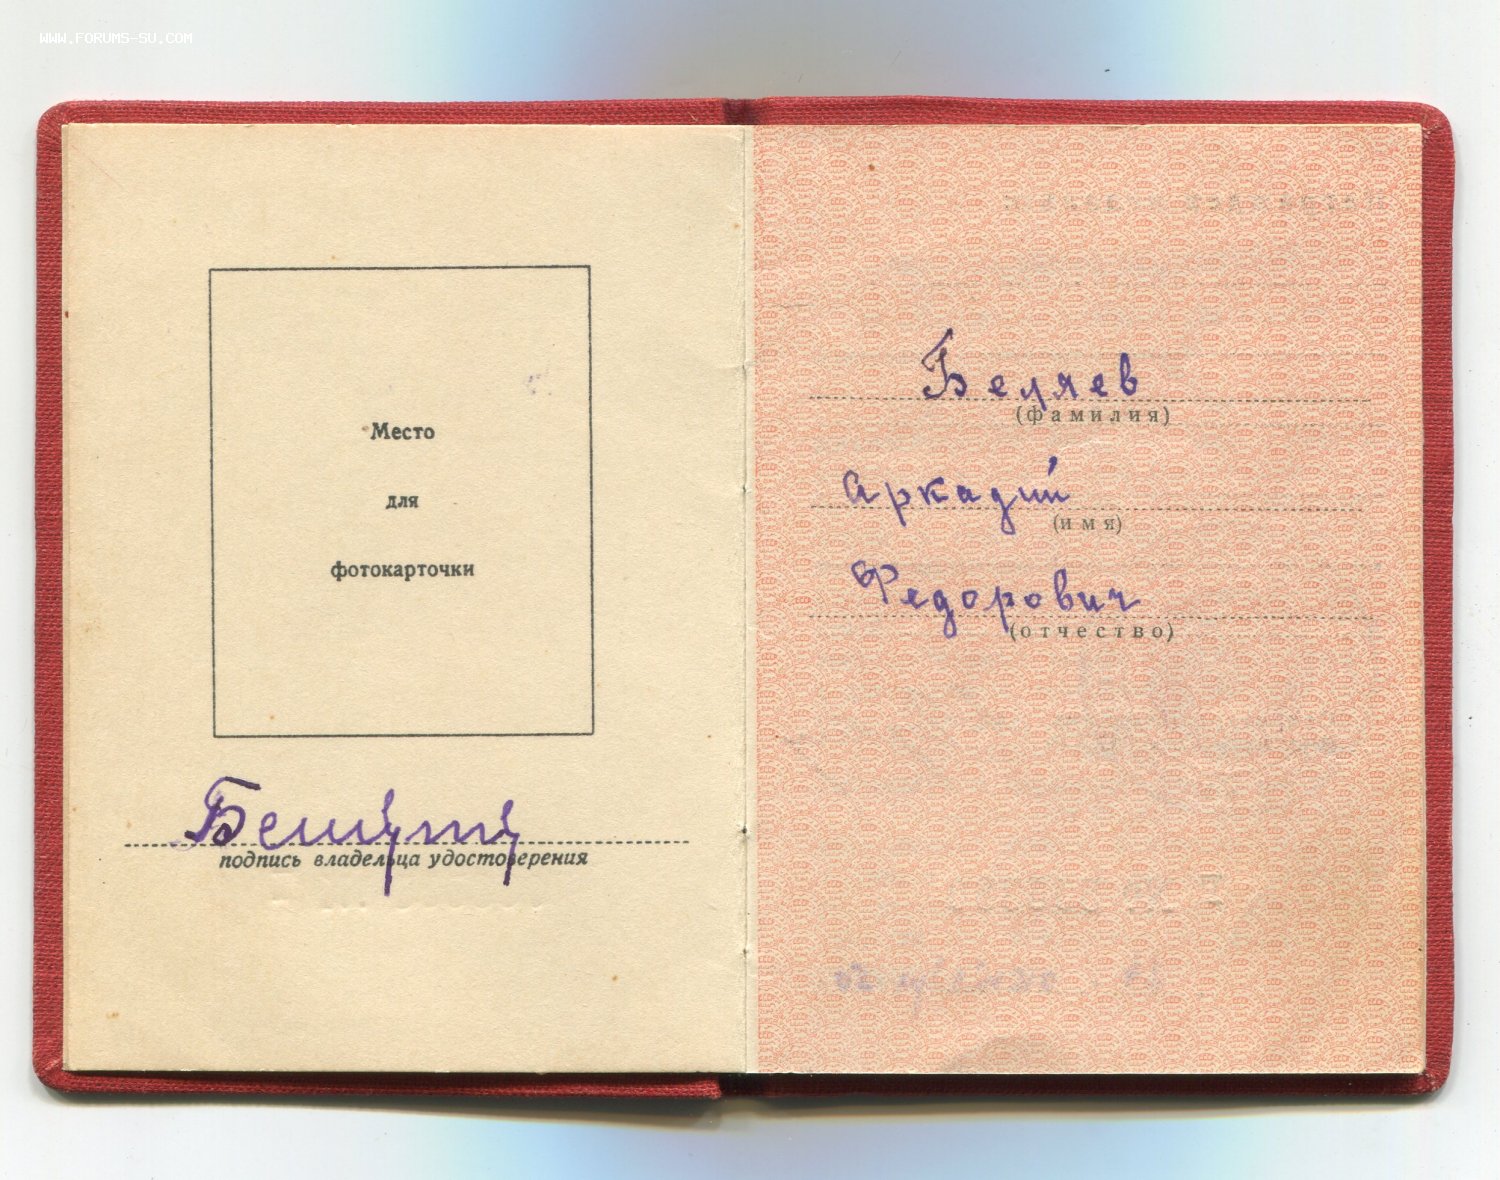 WWW.FORUMS-SU.COM
Место
для
фотокарточки
подпись владельца удостоверения
Беляев
(фамилия)
Аркадий
(имя)
Федорович
(отчество)